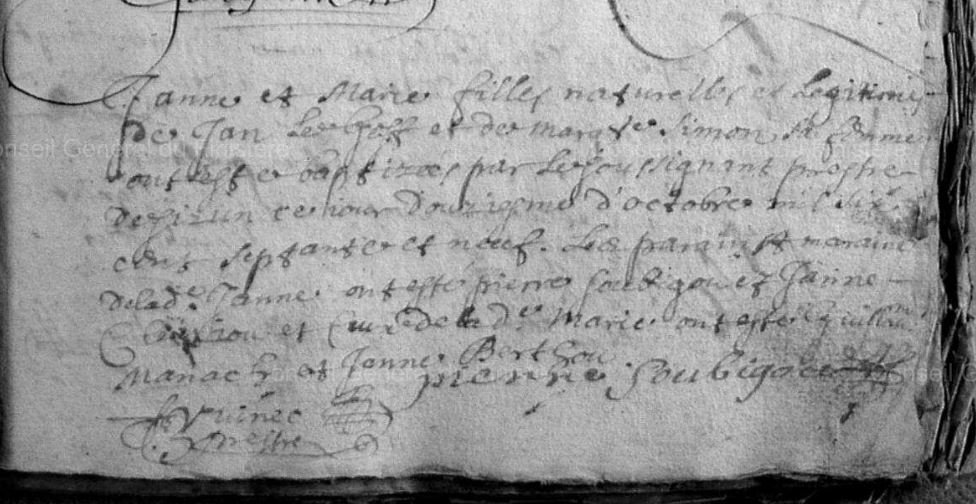 Janne et Marie filles naturelles et legitimes
de Jan Le Goff et de Margte Simon sa femme
ont esté baptizees par le soussignant prestre
de Sizun ce iour douziesme d'octobre mil six
cent septante et neuf. Les parain et maraine
de lade. Janne ont esté pierre Soubigou et Janne
et ceux de lad.e Marie ont esté guillm
Manach et Jenne Berthou
pierre Soubigou
prestre